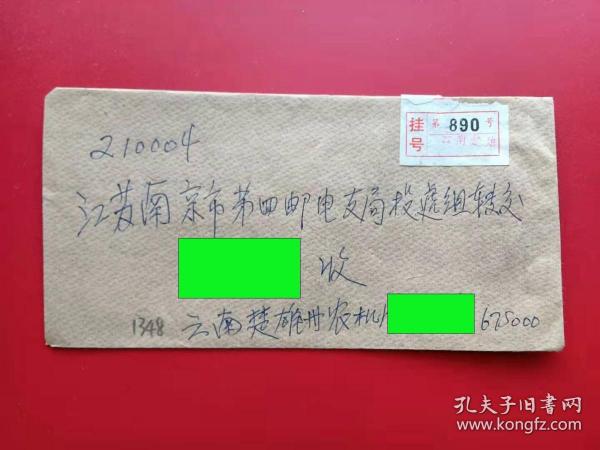 挂号 第 890 号
云南楚雄
210004
江苏南京市第四邮电支局投递组转交
收
1348 云南楚雄州农机 675000
孔夫子旧书网
www.kongfz.com